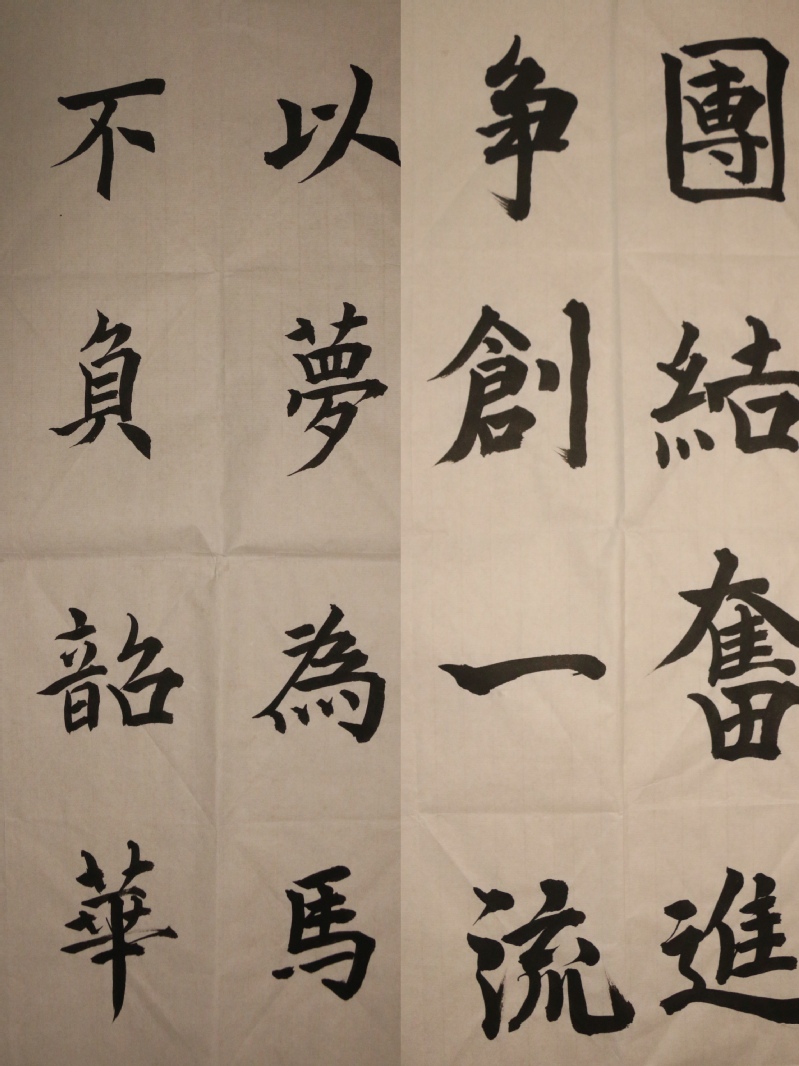 團結奮進
争創一流
以夢為馬
不負韶華